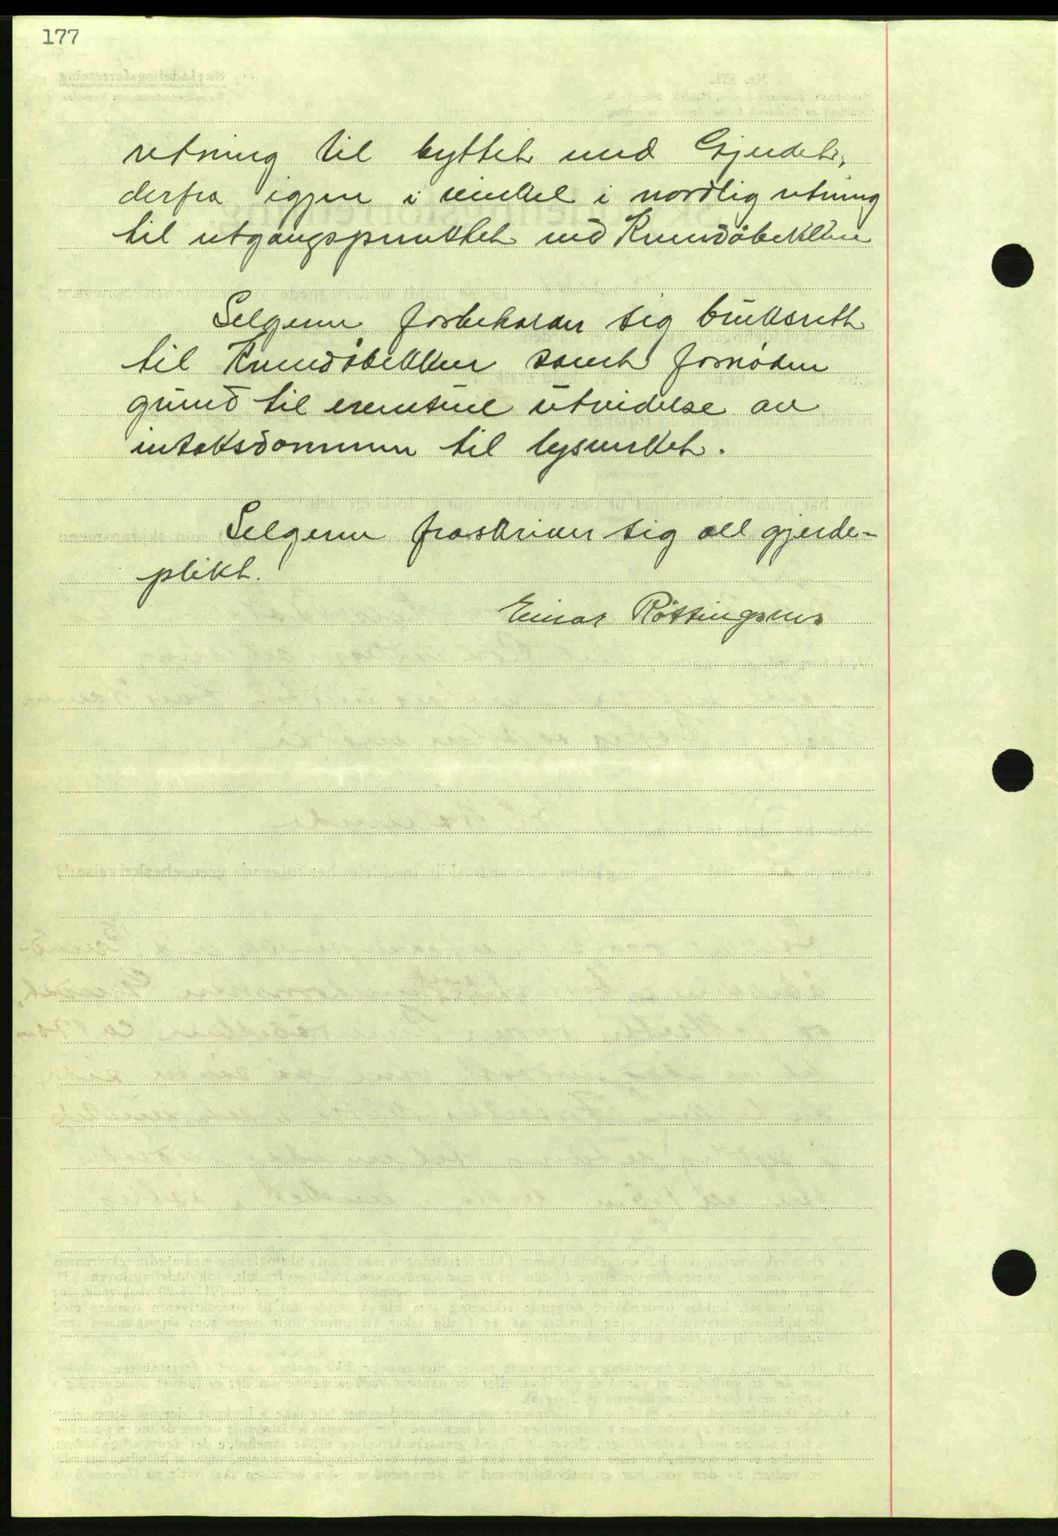 177
retning til byttet med Gjerdet,
derfra igjen i vinkel i nordlig retning
til utgangspunktet ved Krundåbekken
Selgeren forbeholder sig bruksrett
til Krundåbekken samt fornøden
grund til eventuel utvidelse av
intaksdammen til lysverket.
Selgeren fraskriver sig all gjerde-
plikt.
Einar Røttingsnes